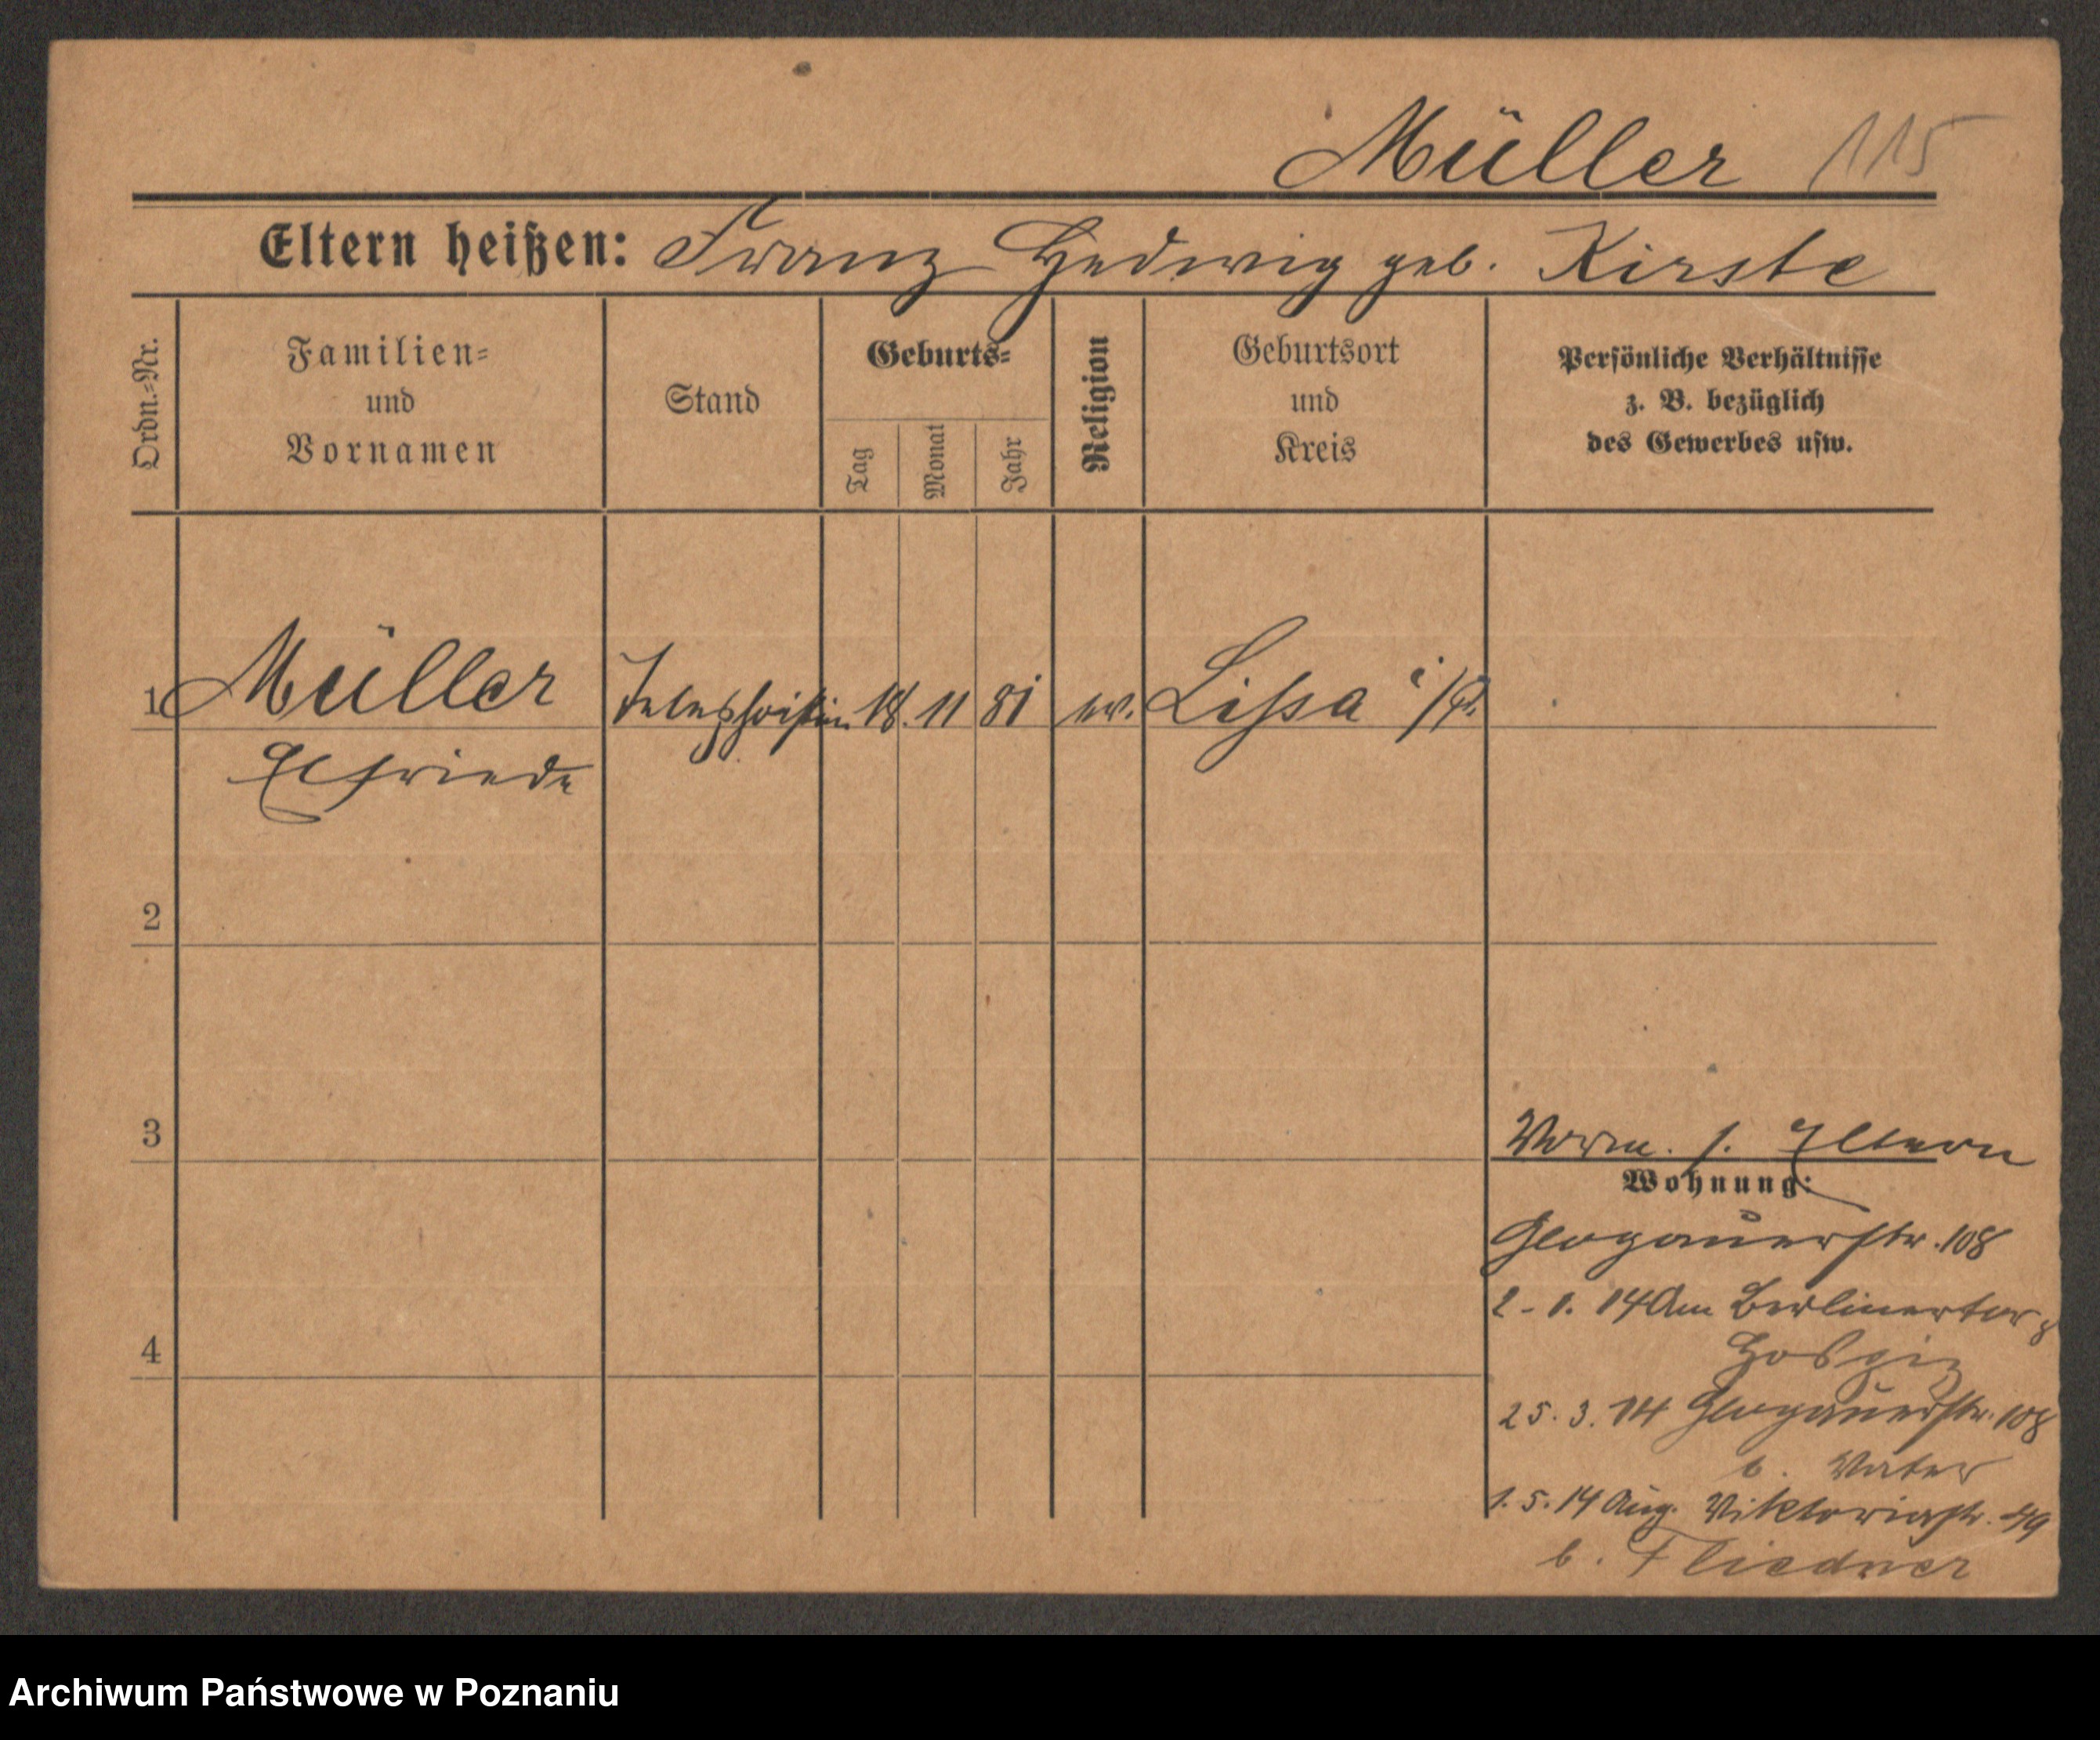 Müller 115
Eltern heißen: Franz Hedwig geb. Kirste
Ordn.=Nr.
Familien=
und
Vornamen
Stand
Geburts=
Tag
Monat
Jahr
Religion
Geburtsort
und
Kreis
Persönliche Verhältnisse
z. B. bezüglich
des Gewerbes usw.
1 Müller Telephonistin 18. 11 81 ev. Lissa i/P.
Elfriede
2
3
Vorm. s. Eltern
Wohnung:
Glogauerstr. 108
2-1. 14 Am Berlinertor
Hospiz
4
25. 3. 14 Glogauerstr. 108
b. Vater
1. 5. 14 Aug. Viktoriastr. 29
b. Fliedner
Archiwum Państwowe w Poznaniu